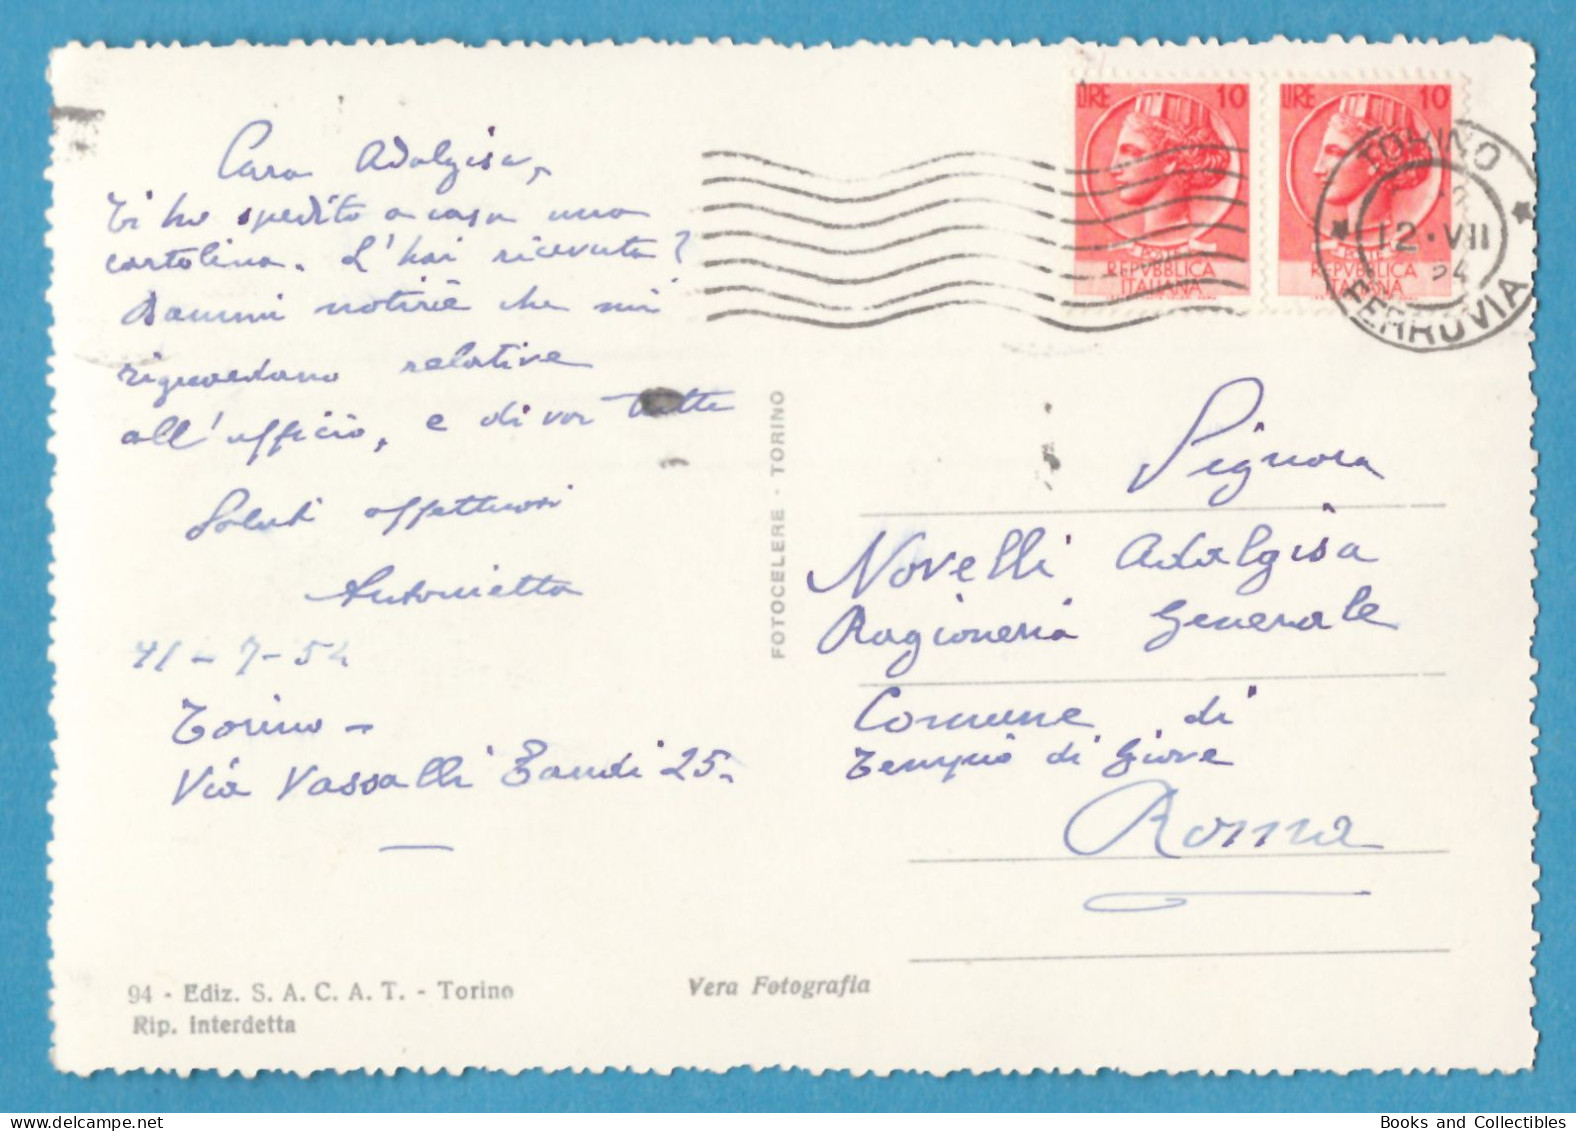 Cara Adalgisa,
Ti ho spedito a casa una
cartolina. L'hai ricevuta?
Dammi notizie che mi
riguardano relative
all'ufficio, e di voi tutte
Saluti affettuosi
Antonietta
11-7-54
Torino -
Via Vassalli Eandi 25-
94 - Ediz. S. A. C. A. T. - Torino
Rip. Interdetta
Vera Fotografia
FOTOCELERE - TORINO
LIRE 10
POSTE
REPVBBLICA
ITALIANA
LIRE 10
POSTE
REPVBBLICA
ITALIANA
TORINO
12·VII
54
FERROVIA
Signora
Novelli Adalgisa
Ragioneria Generale
Comune di
Tempio di Giove
Roma
Books and Collectibles